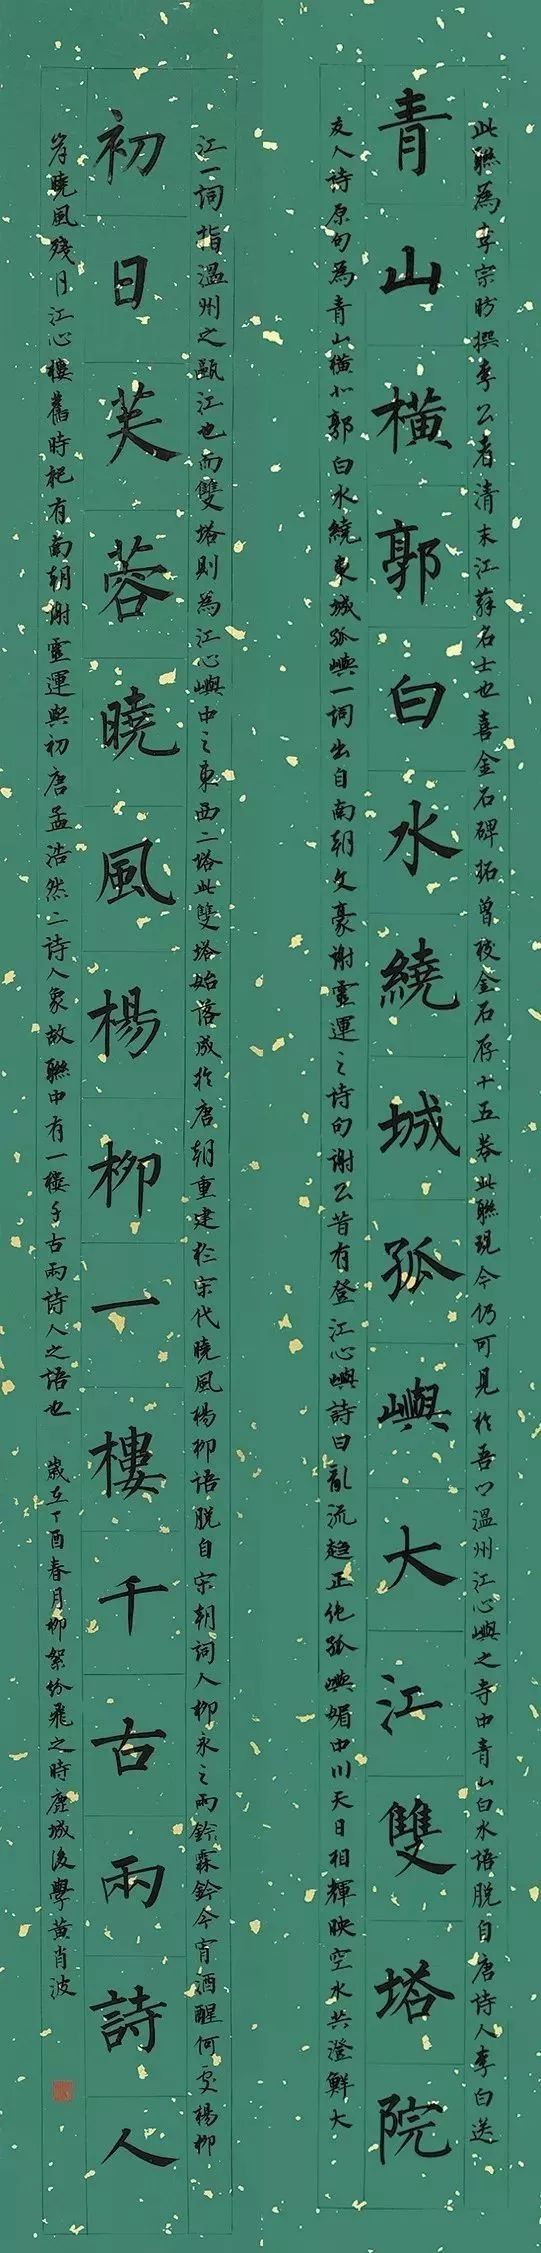 此聯為李宗昉撰李公者清末江蘇名士也喜金石碑拓曾校金石存十五卷此聯現今仍可見於吾鄉溫州江心嶼之寺中青山白水語脫自唐詩人李白送
青山橫郭白水繞城孤嶼大江雙塔院
友人詩原句為青山橫北郭白水繞東城孤嶼一詞出自南朝文豪謝靈運之詩句謝公昔有登江心嶼詩曰亂流趨正絕孤嶼媚中川天日相輝映空水共澄鮮大
江一詞指溫州之甌江也而雙塔則為江心嶼中之東西二塔此雙塔始落成於唐朝重建於宋代曉風楊柳語脫自宋朝詞人柳永之雨鈴霖鈴今宵酒醒何處楊柳
初日芙蓉曉風楊柳一樓千古兩詩人
岸曉風殘月江心樓舊時祀有南朝謝靈運與初唐孟浩然二詩人象故聯中有一樓千古兩詩人之語也 歲在丁酉春月柳絮紛飛之時鹿城後學黃肖波